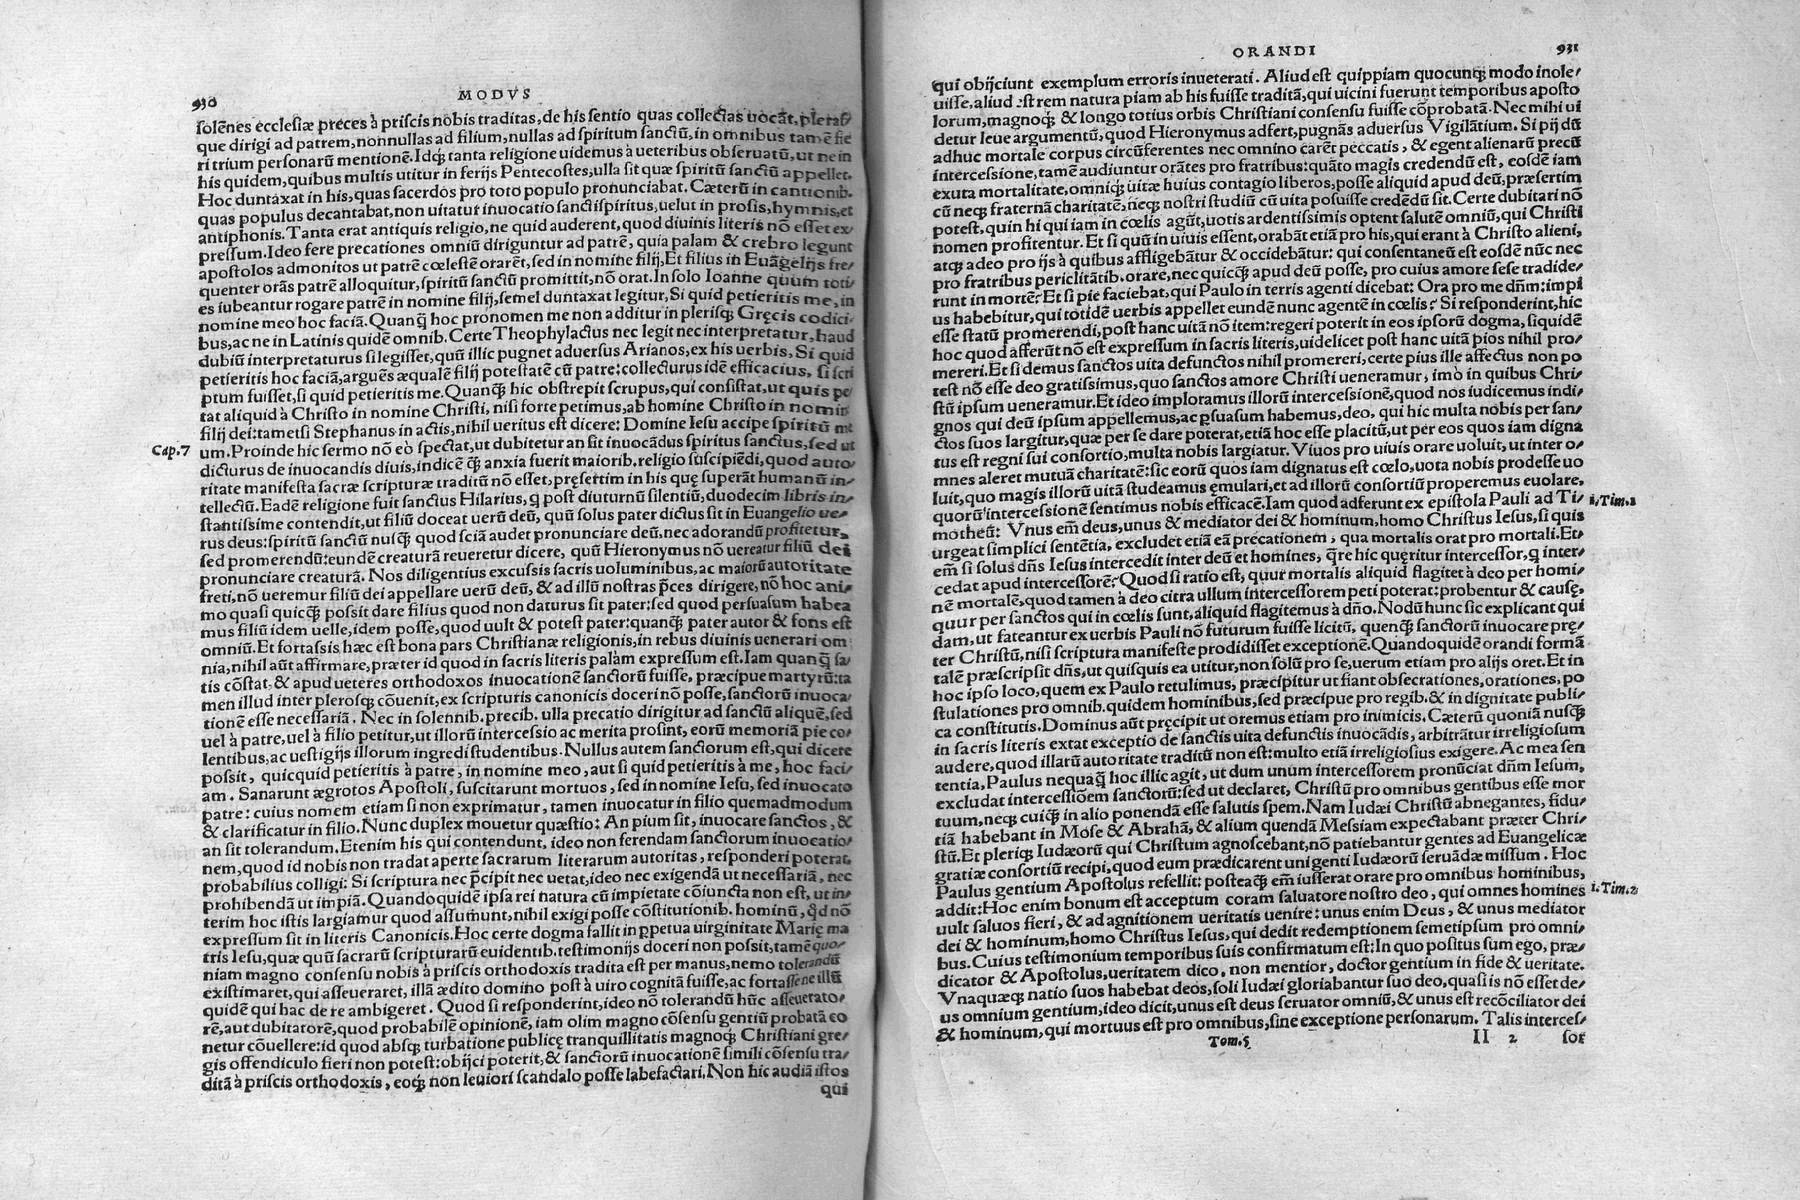 930
MODVS
solēnes ecclesiæ preces à priscis nobis traditas, de his sentio quas collectas uocāt, pleras
que dirigi ad patrem, nonnullas ad filium, nullas ad spiritum sanctū, in omnibus tamē fie
ri trium personarū mentionē. Idq́; tanta religione uidemus à ueteribus obseruatū, ut ne in
his quidem, quibus multis utitur in ferijs Pentecostes, ulla sit quæ spiritū sanctū appellet.
Hoc duntaxat in his, quas sacerdos pro toto populo pronunciabat. Cæterū in cantionib.
quas populus decantabat, non uitatur inuocatio sanctispiritus, uelut in prosis, hymnis, et
antiphonis. Tanta erat antiquis religio, ne quid auderent, quod diuinis literis nō esset ex/
pressum. Ideo fere precationes omniū diriguntur ad patrē, quia palam & crebro legunt
apostolos admonitos ut patrē cœlestē orarēt, sed in nomine filij, Et filius in Euāgelijs fre/
quenter orās patrē alloquitur, spiritū sanctū promittit, nō orat. In solo Ioanne quum toti/
es iubeantur rogare patrē in nomine filij, semel duntaxat legitur, Si quid petieritis me, in
nomine meo hoc faciā. Quanq̄ hoc pronomen me non additur in plerisq; Gręcis codici/
bus, ac ne in Latinis quidē omnib. Certe Theophylactus nec legit nec interpretatur, haud
dubiū interpretaturus si legisset, quū illic pugnet aduersus Arianos, ex his uerbis, Si quid
petieritis hoc faciā, arguēs æqualē filij potestatē cū patre: collecturus idē efficacius, si scri
ptum fuisset, si quid petieritis me. Quanq̄ hic obstrepit scrupus, qui consistat, ut quis pe
tat aliquid à Christo in nomine Christi, nisi forte petimus, ab homine Christo in nomin
filij dei: tametsi Stephanus in actis, nihil ueritus est dicere: Domine Iesu accipe spiritū me
Cap.7
um. Proinde hic sermo nō eò spectat, ut dubitetur an sit inuocādus spiritus sanctus, sed ut
dicturus de inuocandis diuis, indicē q̄ anxia fuerit maiorib. religio suscipiēdi, quod auto/
ritate manifesta sacræ scripturæ traditū nō esset, pręsertim in his quę superāt humanū in/
tellectū. Eadē religione fuit sanctus Hilarius, q post diuturnū silentiū, duodecim libris in/
stantissime contendit, ut filiū doceat uerū deū, quū solus pater dictus sit in Euangelio ue/
rus deus: spiritū sanctū nusq̄ quod sciā audet pronunciare deū, nec adorandū profitetur,
sed promerendū: eundē creaturā reueretur dicere, quū Hieronymus nō uereatur filiū dei
pronunciare creaturā. Nos diligentius excussis sacris uoluminibus, ac maiorū autoritate
freti, nō ueremur filiū dei appellare uerū deū, & ad illū nostras p̄ces dirigere, nō hoc ani/
mo quasi quicq̄ possit dare filius quod non daturus sit pater: sed quod persuasum habea
mus filiū idem uelle, idem posse, quod uult & potest pater: quanq̄ pater autor & fons est
omniū. Et fortassis hæc est bona pars Christianæ religionis, in rebus diuinis uenerari om
nia, nihil aūt affirmare, præter id quod in sacris literis palàm expressum est. Iam quanq̄ sa/
tis cōstat, & apud ueteres orthodoxos inuocationē sanctorū fuisse, præcipue martyrū: ta
men illud inter plerosq; cōuenit, ex scripturis canonicis doceri nō posse, sanctorū inuoca/
tionē esse necessariā. Nec in solennib. precib. ulla precatio dirigitur ad sanctū aliquē, sed
uel à patre, uel à filio petitur, ut illorū intercessio ac merita prosint, eorū memoriā pie co/
lentibus, ac uestigijs illorum ingredi studentibus. Nullus autem sanctorum est, qui dicere
possit, quicquid petieritis à patre, in nomine meo, aut si quid petieritis à me, hoc faci/
am. Sanarunt ægrotos Apostoli, suscitarunt mortuos, sed in nomine Iesu, sed inuocato
patre: cuius nomem etiam si non exprimatur, tamen inuocatur in filio quemadmodum
& clarificatur in filio. Nunc duplex mouetur quæstio: An pium sit, inuocare sanctos, &
an sit tolerandum. Etenim his qui contendunt, ideo non ferendam sanctorum inuocatio/
nem, quod id nobis non tradat aperte sacrarum literarum autoritas, responderi poterat,
probabilius colligi: Si scriptura nec p̄cipit nec uetat, ideo nec exigendā ut necessariā, nec
prohibendā ut impiā. Quandoquidē ipsa rei natura cū impietate cōiuncta non est, ut in/
terim hoc istis largiamur quod assumunt, nihil exigi posse cōstitutionib. hominū, q̃d nō
expressum sit in literis Canonicis. Hoc certe dogma fallit in p̱petua uirginitate Marię ma
tris Iesu, quæ quū sacrarū scripturarū euidentib. testimonijs doceri non possit, tamē quo/
niam magno consensu nobis à priscis orthodoxis tradita est per manus, nemo tolerandū
existimaret, qui asseueraret, illā ædito domino post à uiro cognitā fuisse, ac fortasse ne illū
quidē qui hac de re ambigeret. Quod si responderint, ideo nō tolerandū hūc asseuerato/
rē, aut dubitatorē, quod probabilē opinionē, iam olim magno cōsensu gentiū probatā co
netur cōuellere: id quod absq; turbatione publicę tranquillitatis magnoq́; Christiani gre/
gis offendiculo fieri non potest: obijci poterit, & sanctorū inuocationē simili cōsensu tra/
ditā à priscis orthodoxis, eoq́; non leuiori scandalo posse labefactari. Non hic audiā istos
qui
ORANDI
931
qui obijciunt exemplum erroris inueterati. Aliud est quippiam quocunq; modo inole/
uisse, aliud est rem natura piam ab his fuisse traditā, qui uicini fuerunt temporibus aposto
lorum, magnoq́; & longo totius orbis Christiani consensu fuisse cōprobatā. Nec mihi ui
detur leue argumentū, quod Hieronymus adfert, pugnās aduersus Vigilātium. Si pij dū
adhuc mortale corpus circūferentes nec omnino carēt peccatis, & egent alienarū precū
intercessione, tamē audiuntur orātes pro fratribus: quāto magis credendū est, eosdē iam
exuta mortalitate, omniq; uitæ huius contagio liberos, posse aliquid apud deū, præsertim
cū neq; fraternā charitatē, neq; nostri studiū cū uita posuisse credēdū sit. Certe dubitari nō
potest, quin hi qui iam in cœlis agūt, uotis ardentissimis optent salutē omniū, qui Christi
nomen profitentur. Et si quū in uiuis essent, orabāt etiā pro his, qui erant à Christo alieni,
atq; adeo pro ijs à quibus affligebātur & occidebātur: qui consentaneū est eosdē nūc nec
pro fratribus periclitātib. orare, nec quicq̄ apud deū posse, pro cuius amore sese tradide/
runt in mortē? Et si pie faciebat, qui Paulo in terris agenti dicebat: Ora pro me dñm: impi
us habebitur, qui totidē uerbis appellet eundē nunc agentē in cœlis? Si responderint, hic
esse statū promerendi, post hanc uitā nō item: regeri poterit in eos ipsorū dogma, siquidē
hoc quod afferūt nō est expressum in sacris literis, uidelicet post hanc uitā pios nihil pro/
mereri. Et si demus sanctos uita defunctos nihil promereri, certe pius ille affectus non po
test nō esse deo gratissimus, quo sanctos amore Christi ueneramur, imò in quibus Chri/
stū ipsum ueneramur. Et ideo imploramus illorū intercessionē, quod nos iudicemus indi/
gnos qui deū ipsum appellemus, ac p̱suasum habemus, deo, qui hic multa nobis per san/
ctos suos largitur, quæ per se dare poterat, etiā hoc esse placitū, ut per eos quos iam digna
tus est regni sui consortio, multa nobis largiatur. Viuos pro uiuis orare uoluit, ut inter o/
mnes aleret mutuā charitatē: sic eorū quos iam dignatus est cœlo, uota nobis prodesse uo
luit, quo magis illorū uitā studeamus ęmulari, et ad illorū consortiū properemus euolare,
quorū intercessionē sentimus nobis efficacē. Iam quod adferunt ex epistola Pauli ad Ti/
1. Tim. 2
motheū: Vnus em̄ deus, unus & mediator dei & hominum, homo Christus Iesus, si quis
urgeat simplici sentētia, excludet etiā eā precationem, qua mortalis orat pro mortali. Et/
em̄ si solus dñs Iesus intercedit inter deū et homines, q̄re hic quęritur intercessor, q inter/
cedat apud intercessorē? Quod si ratio est, quur mortalis aliquid flagitet à deo per homi/
nē mortalē, quod tamen à deo citra ullum intercessorem peti poterat: probentur & causę,
quur per sanctos qui in cœlis sunt, aliquid flagitemus à dño. Nodū hunc sic explicant qui
dam, ut fateantur ex uerbis Pauli nō futurum fuisse licitū, quenq̄ sanctorū inuocare prę/
ter Christū, nisi scriptura manifeste prodidisset exceptionē. Quandoquidē orandi formā
talē præscripsit dñs, ut quisquis ea utitur, non solū pro se, uerum etiam pro alijs oret. Et in
hoc ipso loco, quem ex Paulo retulimus, præcipitur ut fiant obsecrationes, orationes, po
stulationes pro omnib. quidem hominibus, sed præcipue pro regib. & in dignitate publi/
ca constitutis. Dominus aūt pręcipit ut oremus etiam pro inimicis. Cæterū quoniā nusq̄
in sacris literis extat exceptio de sanctis uita defunctis inuocādis, arbitrātur irreligiosum
audere, quod illarū autoritate traditū non est: multo etiā irreligiosius exigere. Ac mea sen
tentia, Paulus nequaq̄ hoc illic agit, ut dum unum intercessorem pronūciat dñm Iesum,
excludat intercessiōem sanctorū: sed ut declaret, Christū pro omnibus gentibus esse mor
tuum, neq; cuiq̄ in alio ponendā esse salutis spem. Nam Iudæi Christū abnegantes, fidu/
tiā habebant in Mose & Abrahā, & alium quendā Messiam expectabant præter Chri/
stū. Et pleriq; Iudæorū qui Christum agnoscebant, nō patiebantur gentes ad Euangelicæ
gratiæ consortiū recipi, quod eum prædicarent uni genti Iudæorū seruādæ missum. Hoc
Paulus gentium Apostolus refellit: posteaq̄ em̄ iusserat orare pro omnibus hominibus,
1. Tim. 2
addit: Hoc enim bonum est acceptum coram saluatore nostro deo, qui omnes homines
uult saluos fieri, & ad agnitionem ueritatis uenire: unus enim Deus, & unus mediator
dei & hominum, homo Christus Iesus, qui dedit redemptionem semetipsum pro omni/
bus. Cuius testimonium temporibus suis confirmatum est: In quo positus sum ego, præ/
dicator & Apostolus, ueritatem dico, non mentior, doctor gentium in fide & ueritate.
Vnaquæq; natio suos habebat deos, soli Iudæi gloriabantur suo deo, quasi is nō esset de/
us omnium gentium, ideo dicit, unus est deus seruator omniū, & unus est recōciliator dei
& hominum, qui mortuus est pro omnibus, sine exceptione personarum. Talis interces/
Tom. 5
II 2
sor